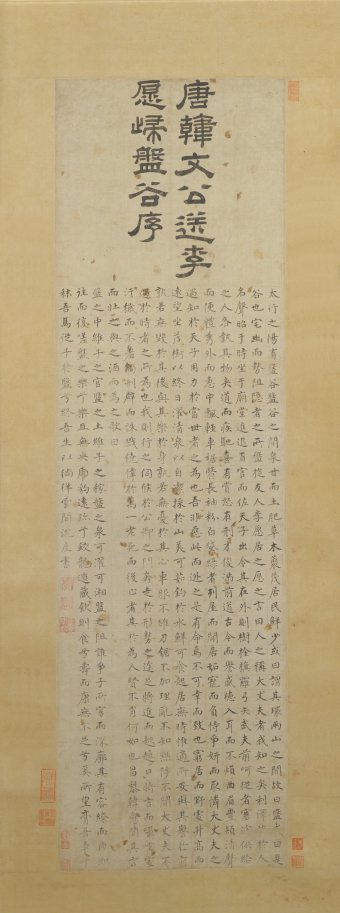 唐韓文公送李
愿歸盤谷序
太行之陽有盤谷盤谷之間泉甘而土肥草木叢茂居民鮮少或曰謂其環兩山之間故曰盤或曰是
谷也宅幽而勢阻隱者之所盤旋友人李愿居之愿之言曰人之稱大丈夫者我知之矣利澤施於人
名聲昭于時坐于廟堂進退百官而佐天子出令其在外則樹旗旄羅弓矢武夫前呵從者塞途供給
之人各執其物夾道而疾馳喜有賞怒有刑才俊滿前道古今而譽盛德入耳而不煩曲眉豐頰清聲
而便體秀外而惠中飄輕裾翳長袖粉白黛綠者列屋而閒居妒寵而負恃爭妍而取憐大丈夫之
遇知於天子用力於當世者之為也吾非惡此而逃之是有命焉不可幸而致也窮居而野處升高而
遠望坐茂樹以終日濯清泉以自潔採於山美可茹釣於水鮮可食起居無時惟適所安與其譽於前
孰若無毀於其後與其樂於身孰若無憂於其心車服不維刀鋸不加理亂不知黜陟不聞大丈夫不
遇於時者之所為也我則行之伺候於公卿之門奔走於形勢之途足將進而趑趄口將言而囁嚅處
污穢而不羞觸刑辟而誅戮僥倖於萬一老死而後止者其於為人賢不肖何如也昌黎韓愈聞其言
而壯之與之酒而為之歌曰
盤之中維子之宮盤之土維子之稼盤之泉可濯可湘盤之阻誰爭子所窈而深廓其有容繚而曲如
往而復嗟盤之樂兮樂且無央虎豹遠跡兮蛟龍遁藏飲則食兮壽而康無不足兮奚所望膏吾車兮
秣吾馬從子于盤兮終吾生以徜徉雲間沈度書